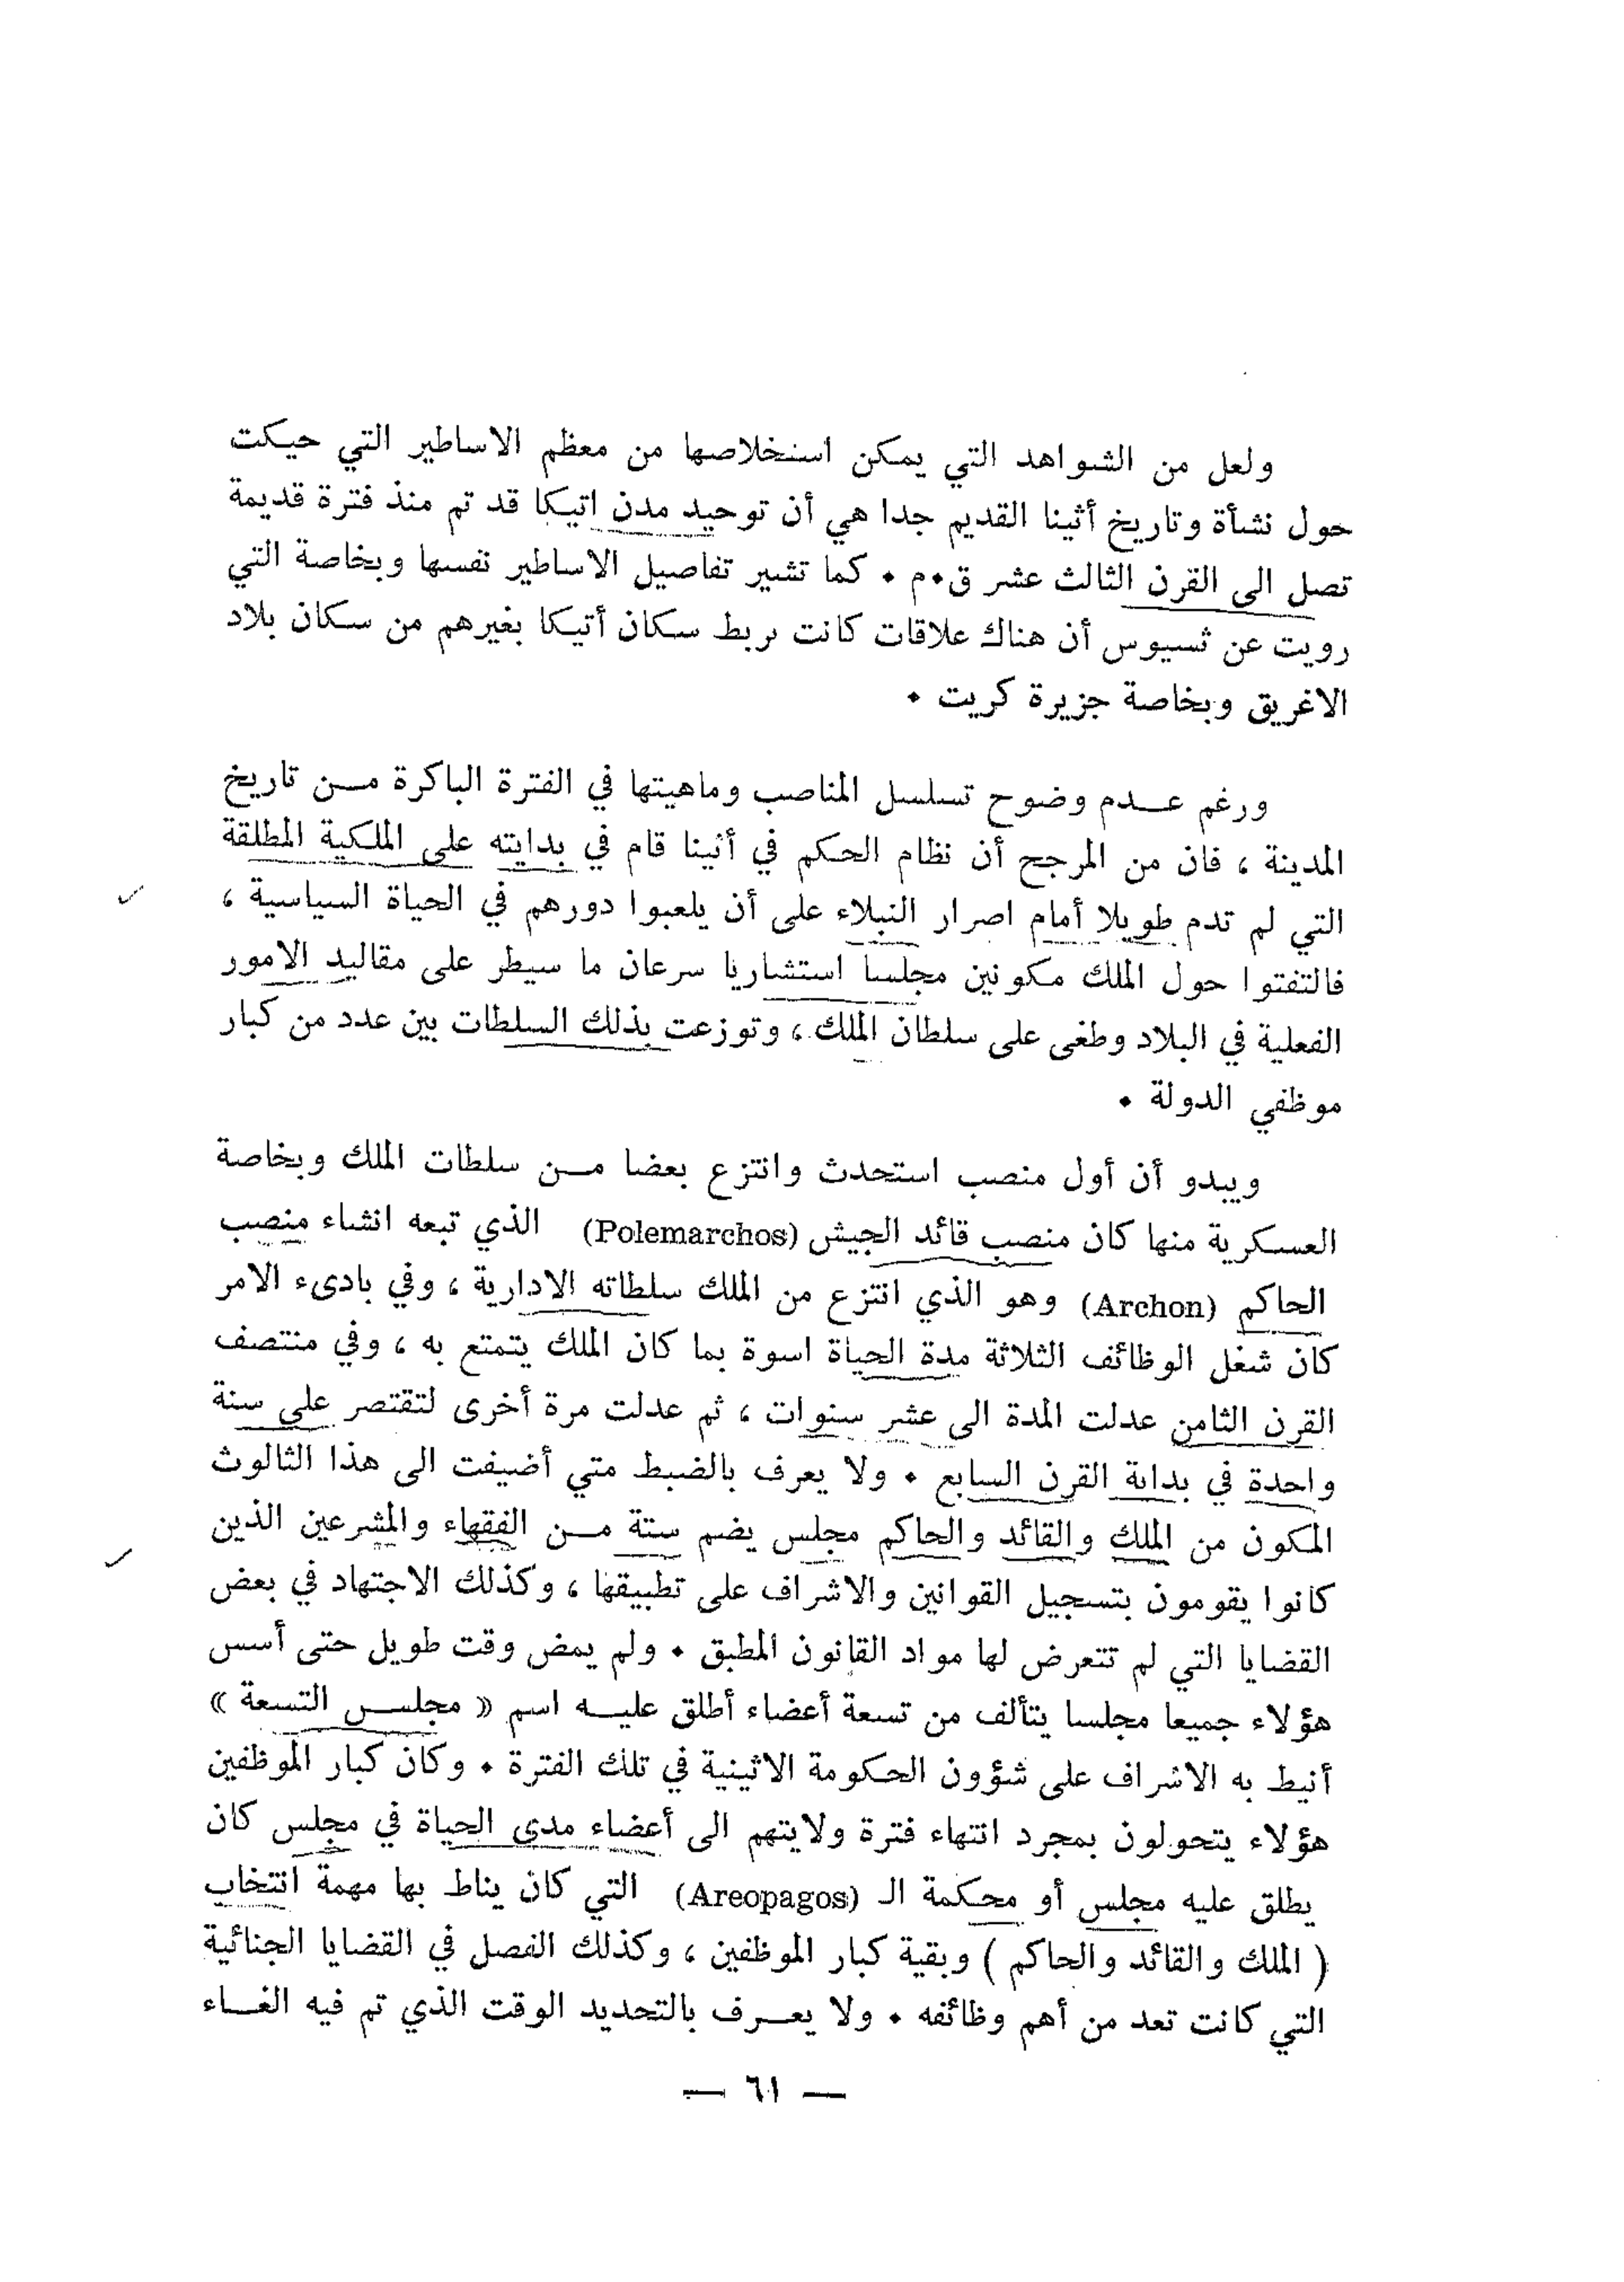 ولعل من الشواهد التي يمكن استخلاصها من معظم الاساطير التي حيكت
حول نشأة وتاريخ أثينا القديم جدا هي أن توحيد مدن اتيكا قد تم منذ فترة قديمة
تصل الى القرن الثالث عشر ق٠م ٠ كما تشير تفاصيل الاساطير نفسها وبخاصة التي
رويت عن ثسيوس أن هناك علاقات كانت تربط سكان أتيكا بغيرهم من سكان بلاد
الاغريق وبخاصة جزيرة كريت ٠
ورغم عدم وضوح تسلسل المناصب وماهيتها في الفترة الباكرة من تاريخ
المدينة ، فان من المرجح أن نظام الحكم في أثينا قام في بدايته على الملكية المطلقة
التي لم تدم طويلا أمام اصرار النبلاء على أن يلعبوا دورهم في الحياة السياسية ،
فالتفتوا حول الملك مكونين مجلسا استشاريا سرعان ما سيطر على مقاليد الامور
الفعلية في البلاد وطغى على سلطان الملك ، وتوزعت بذلك السلطات بين عدد من كبار
موظفي الدولة ٠
ويبدو أن أول منصب استحدث وانتزع بعضا من سلطات الملك وبخاصة
العسكرية منها كان منصب قائد الجيش (Polemarchos) الذي تبعه انشاء منصب
الحاكم (Archon) وهو الذي انتزع من الملك سلطاته الادارية ، وفي بادىء الامر
كان شغل الوظائف الثلاثة مدة الحياة اسوة بما كان الملك يتمتع به ، وفي منتصف
القرن الثامن عدلت المدة الى عشر سنوات ، ثم عدلت مرة أخرى لتقتصر على سنة
واحدة في بداية القرن السابع ٠ ولا يعرف بالضبط متي أضيفت الى هذا الثالوث
المكون من الملك والقائد والحاكم مجلس يضم ستة من الفقهاء والمشرعين الذين
كانوا يقومون بتسجيل القوانين والاشراف على تطبيقها ، وكذلك الاجتهاد في بعض
القضايا التي لم تتعرض لها مواد القانون المطبق ٠ ولم يمض وقت طويل حتى أسس
هؤلاء جميعا مجلسا يتألف من تسعة أعضاء أطلق عليه اسم « مجلس التسعة »
أنيط به الاشراف على شؤون الحكومة الاثينية في تلك الفترة ٠ وكان كبار الموظفين
هؤلاء يتحولون بمجرد انتهاء فترة ولايتهم الى أعضاء مدى الحياة في مجلس كان
يطلق عليه مجلس أو محكمة الـ (Areopagos) التي كان يناط بها مهمة انتخاب
( الملك والقائد والحاكم ) وبقية كبار الموظفين ، وكذلك الفصل في القضايا الجنائية
التي كانت تعد من أهم وظائفه ٠ ولا يعرف بالتحديد الوقت الذي تم فيه الغاء
— ٦١ —